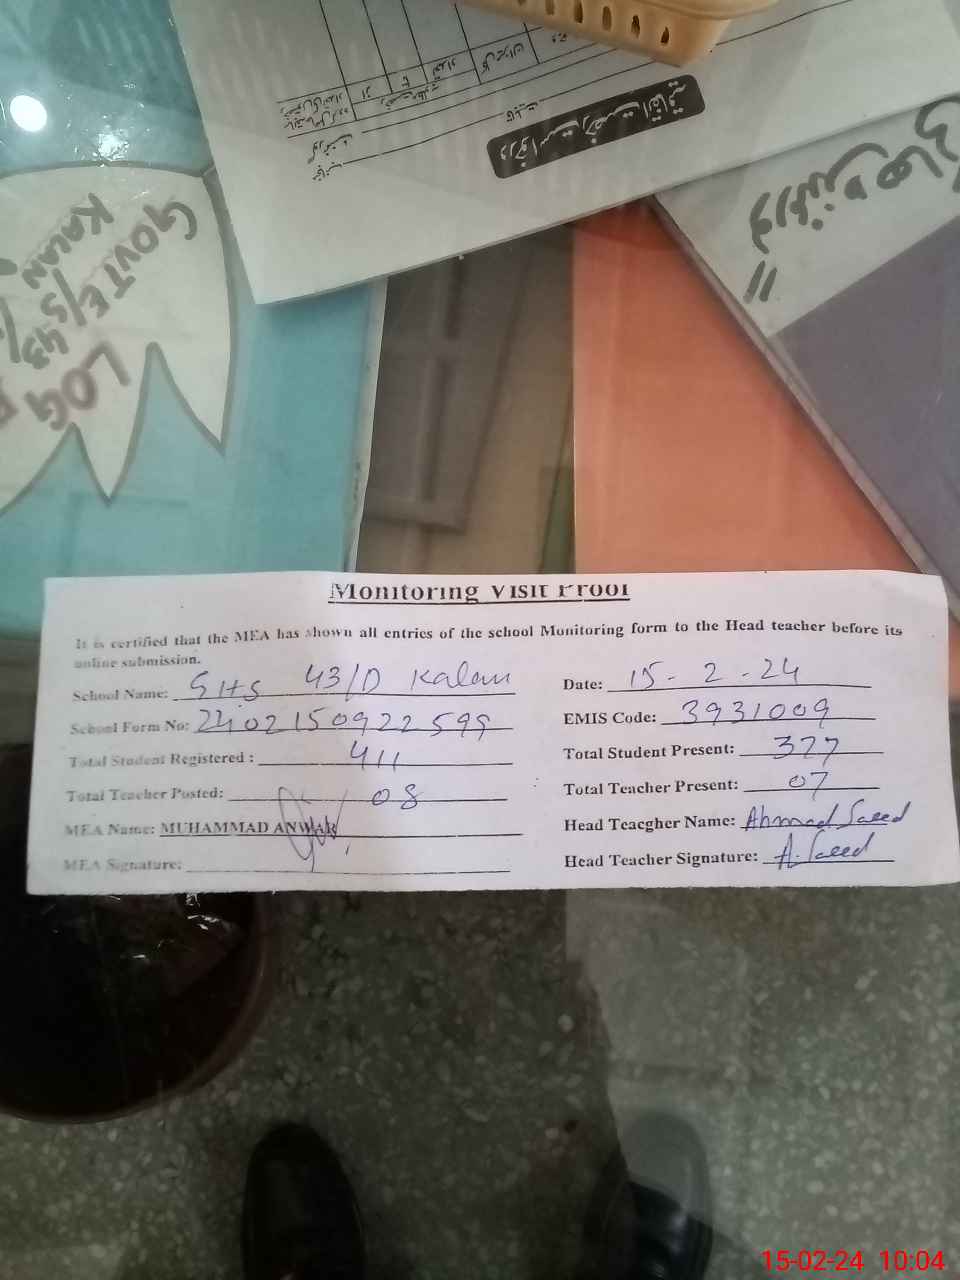 درخواست رخصت اتفاقیہ
GOVT E/S 43/
KALAN
LOG
Monitoring Visit Proof
It is certified that the MEA has shown all entries of the school Monitoring form to the Head teacher before its
online submission.
School Name: GHS 43/D Kalan Date: 15-2-24
School Form No: 2402150922599 EMIS Code: 3931009
Total Student Registered : 411 Total Student Present: 377
Total Teacher Posted: 08 Total Teacher Present: 07
MEA Name: MUHAMMAD ANWAR Head Teacgher Name: Ahmad Saeed
MEA Signature: Head Teacher Signature: A.Saeed
15-02-24 10:04